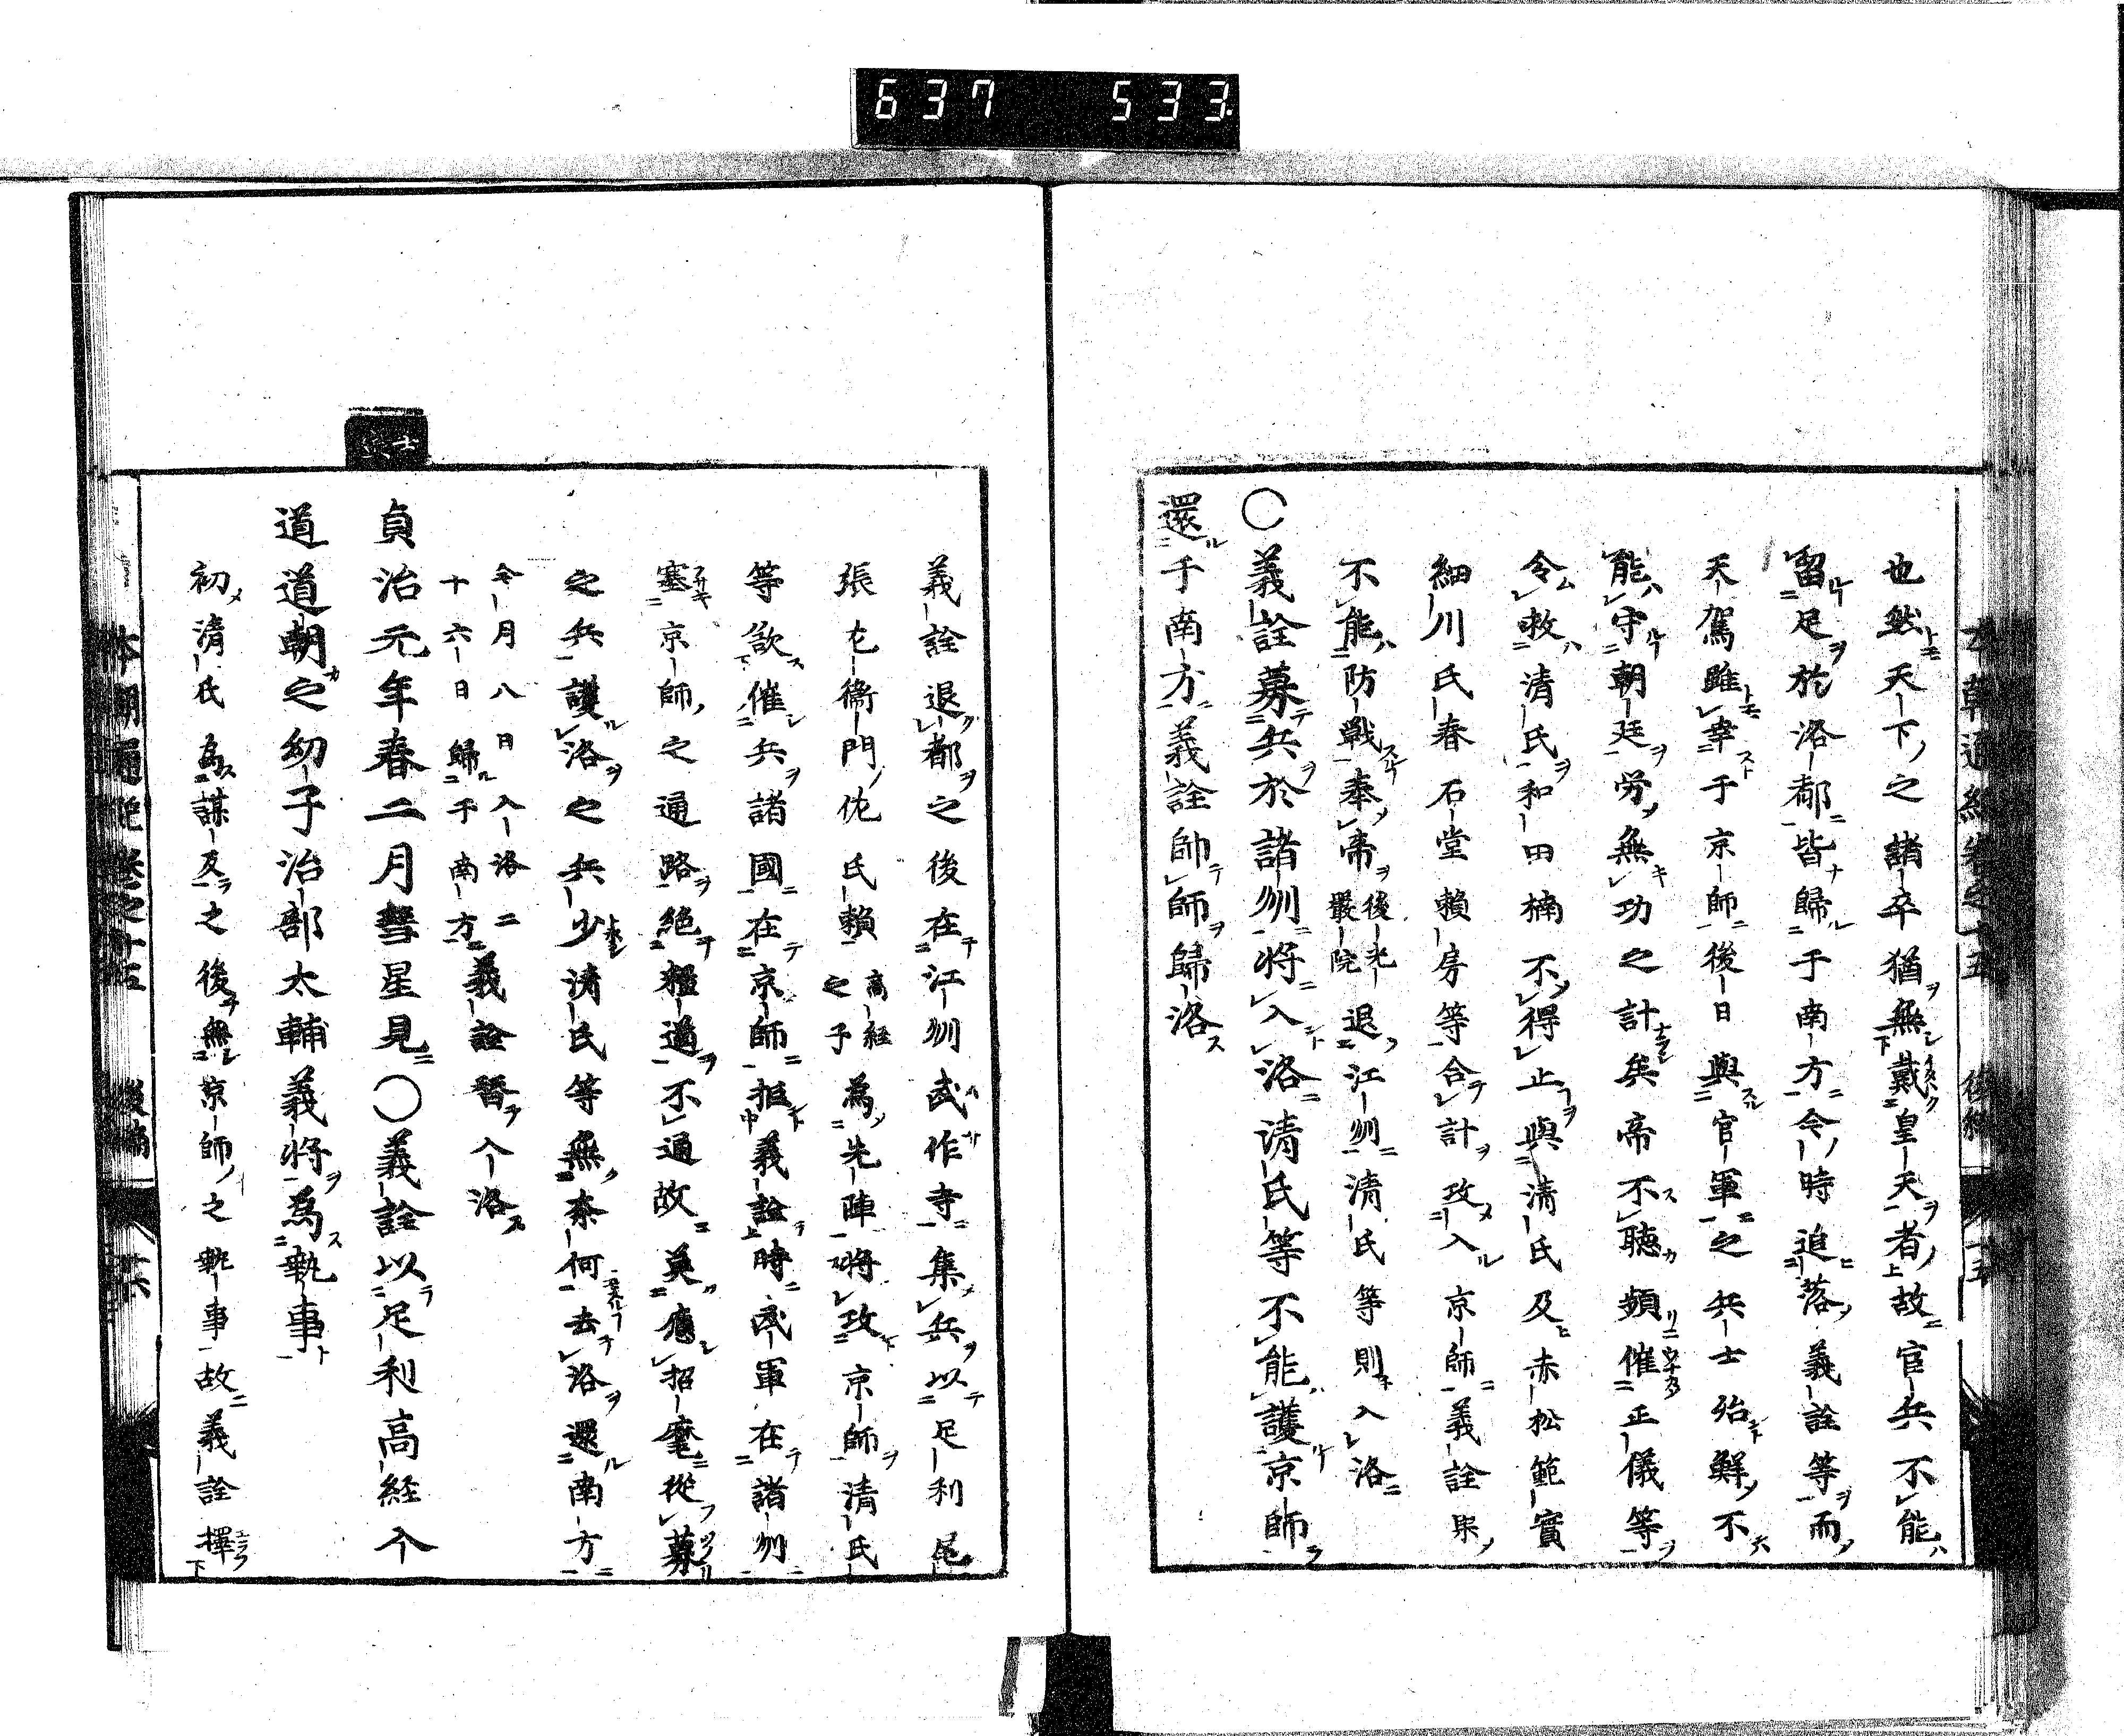 637 533
也然天下之諸卒猶無戴皇天者故官兵不能
留足於洛都皆歸于南方今時追落義詮等而
天駕雖幸于京師後日與官軍之兵士殆鮮不
能守朝廷勞無功之計矣帝不聽頻催正儀等
令救清氏和田楠不得止與清氏及赤松範實
細川氏春石堂賴房等合計攻入京師義詮眾
不能防戰奉帝後光嚴院退江州清氏等則入洛
〇義詮募兵於諸州將入洛清氏等不能護京師
還于南方義詮帥師歸洛
義詮退都之後在江州武作寺集兵以足利尾
張左衞門佐氏賴高経之子為先陣將攻京師清氏
等欲催兵諸國在京師拒義詮時武軍在諸州
塞京師之通路絕糧道不通故莫應招麾從募
之兵護洛之兵少清氏等無柰何去洛還南方
今月八日入洛二十六日歸于南方義詮替入洛
貞治元年春二月彗星見〇義詮以足利高経入
道道朝之幼子治部太輔義將為執事
初清氏為謀反之後無京師之執事故義詮擇
本朝通紀卷之十五 後編